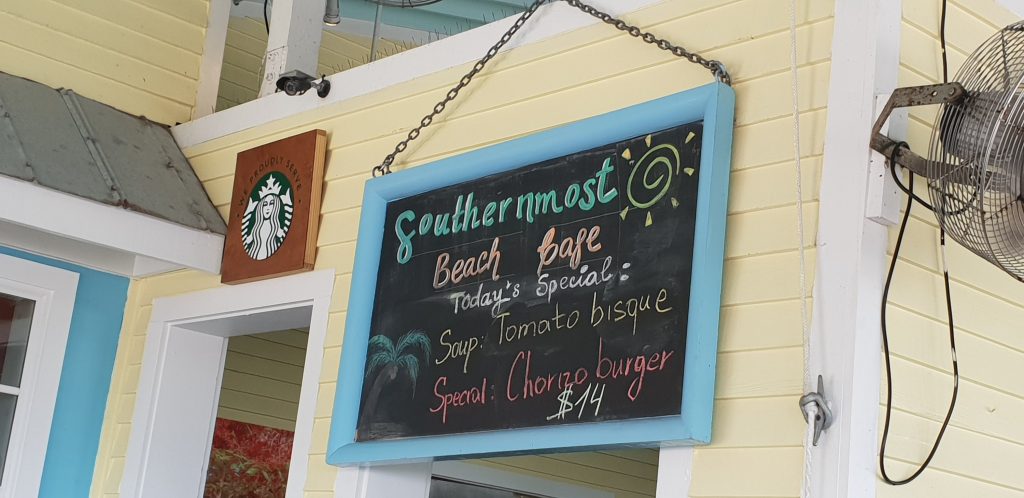 WE PROUDLY SERVE
Southernmost
Beach Cafe
Today's Special:
Soup: Tomato bisque
Special: Chorizo burger
$14